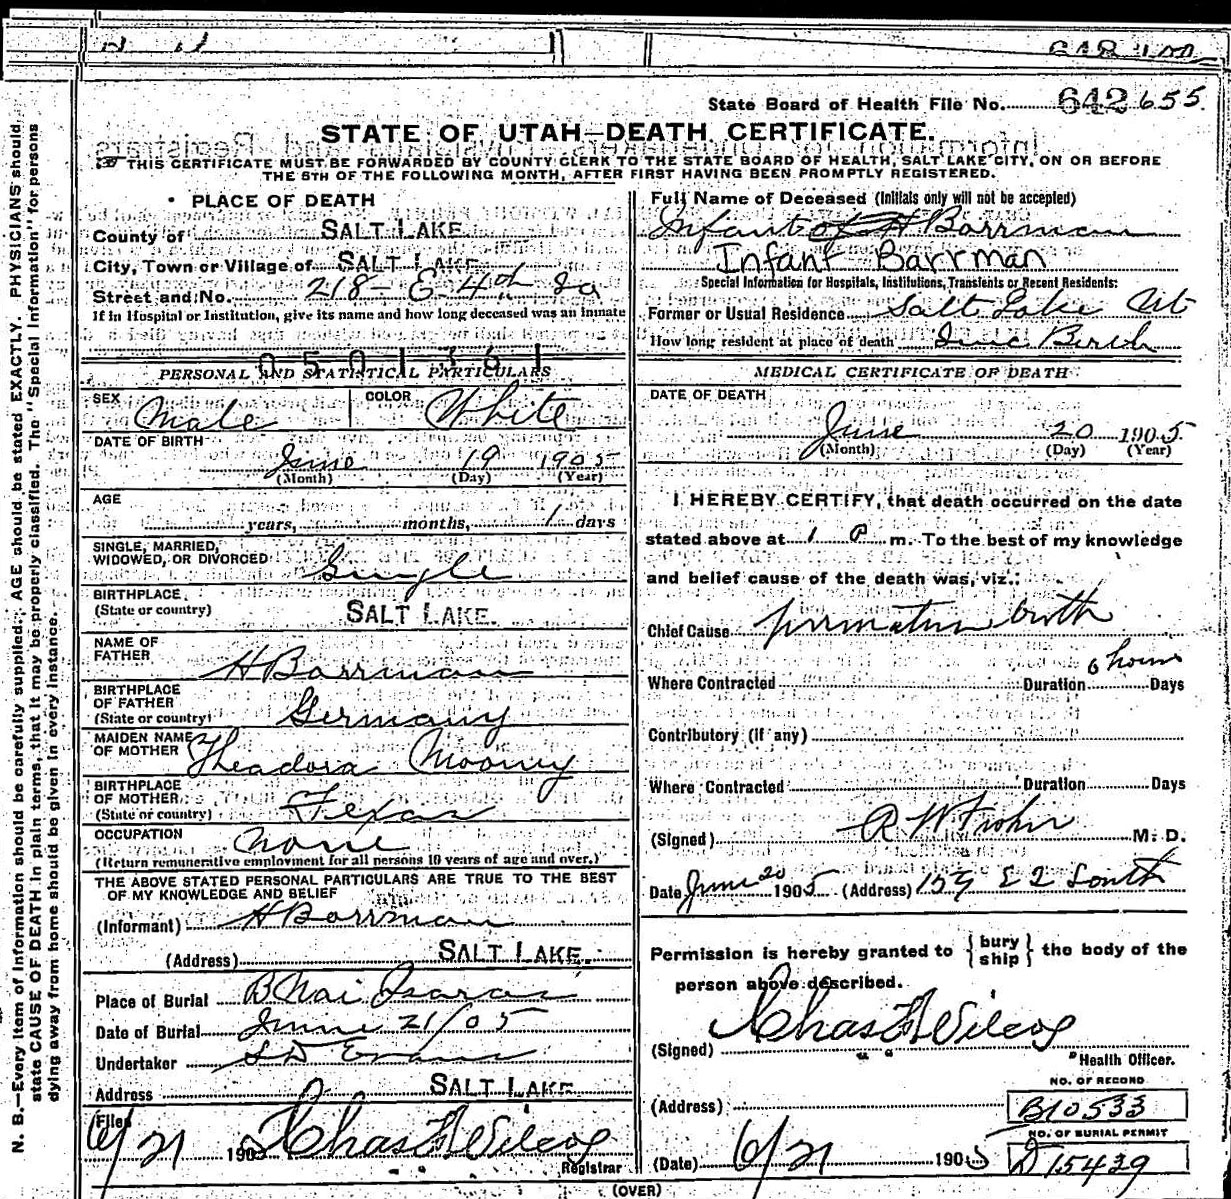 State Board of Health File No. 642655
STATE OF UTAH—DEATH CERTIFICATE.
THIS CERTIFICATE MUST BE FORWARDED BY COUNTY CLERK TO THE STATE BOARD OF HEALTH, SALT LAKE CITY, ON OR BEFORE
THE 5TH OF THE FOLLOWING MONTH, AFTER FIRST HAVING BEEN PROMPTLY REGISTERED.
PLACE OF DEATH
County of SALT LAKE
City, Town or Village of SALT LAKE
Street and No. 218 - E. 4th So
If in Hospital or Institution, give its name and how long deceased was an inmate
0501361
PERSONAL AND STATISTICAL PARTICULARS
SEX Male COLOR White
DATE OF BIRTH
June 19 1905
(Month) (Day) (Year)
AGE
years, months, 1 days
SINGLE, MARRIED,
WIDOWED, OR DIVORCED Single
BIRTHPLACE
(State or country) SALT LAKE.
NAME OF
FATHER H Barrman
BIRTHPLACE
OF FATHER
(State or country) Germany
MAIDEN NAME
OF MOTHER Theadora Mooney
BIRTHPLACE
OF MOTHER
(State or country) Texas
OCCUPATION None
(Return remunerative employment for all persons 10 years of age and over.)
THE ABOVE STATED PERSONAL PARTICULARS ARE TRUE TO THE BEST
OF MY KNOWLEDGE AND BELIEF
(Informant) H Barrman
(Address) SALT LAKE.
Place of Burial B Nai Israel
Date of Burial June 21/05
Undertaker S D Evans
Address SALT LAKE
Filed
6/21 1905 Chas F Wilcox
Registrar
Full Name of Deceased (Initials only will not be accepted)
Infant of H Barrman
Infant Barrman
Special Information for Hospitals, Institutions, Transients or Recent Residents:
Former or Usual Residence Salt Lake Ut
How long resident at place of death Since Birth
MEDICAL CERTIFICATE OF DEATH
DATE OF DEATH
June 20 1905
(Month) (Day) (Year)
I HEREBY CERTIFY, that death occurred on the date
stated above at 1 P m. To the best of my knowledge
and belief cause of the death was, viz.:
Chief Cause premature birth
Where Contracted Duration 6 hours Days
Contributory (if any)
Where Contracted Duration Days
(Signed) M. D.
Date June 20 1905 (Address) 159 E 2 South
Permission is hereby granted to {bury ship} the body of the
person above described.
(Signed) Chas F Wilcox
Health Officer.
(Address)
NO. OF RECORD
B10533
NO. OF BURIAL PERMIT
D15439
(Date) 6/21 1905
(OVER)
N. B.—Every item of information should be carefully supplied. AGE should be stated EXACTLY. PHYSICIANS should
state CAUSE OF DEATH in plain terms, that it may be properly classified. The "Special Information" for persons
dying away from home should be given in every instance.